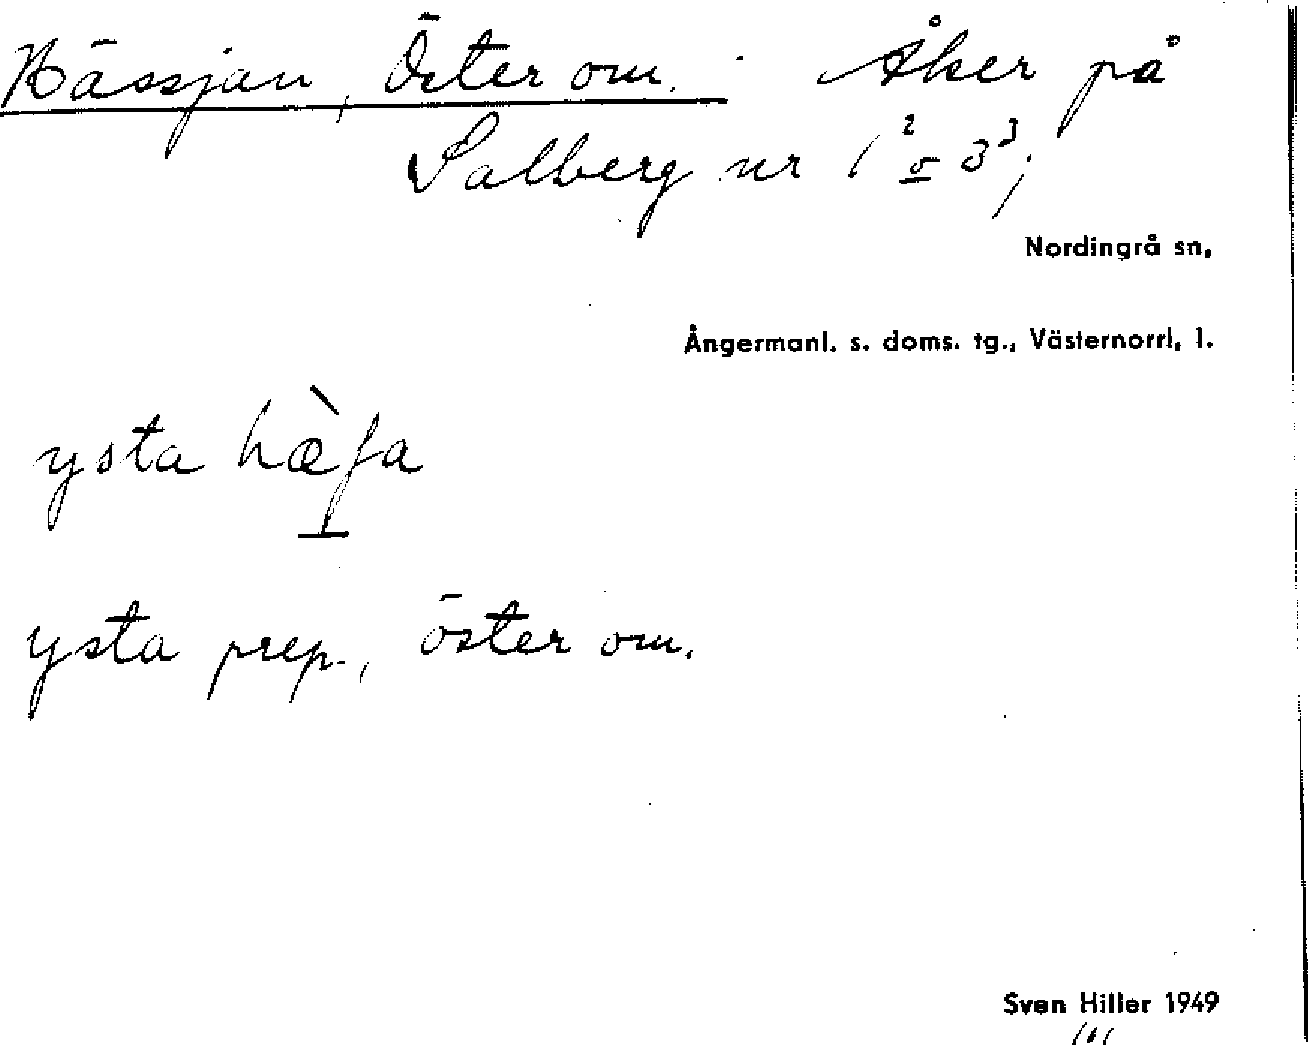 Hässjan, Öster om. Åker på
Salberg nr 1² o 3³;
Nordingrå sn,
Ångermanl. s. doms. tg., Västernorrl, l.
ysta hæ̀ʃa
ysta prep., öster om.
Sven Hiller 1949